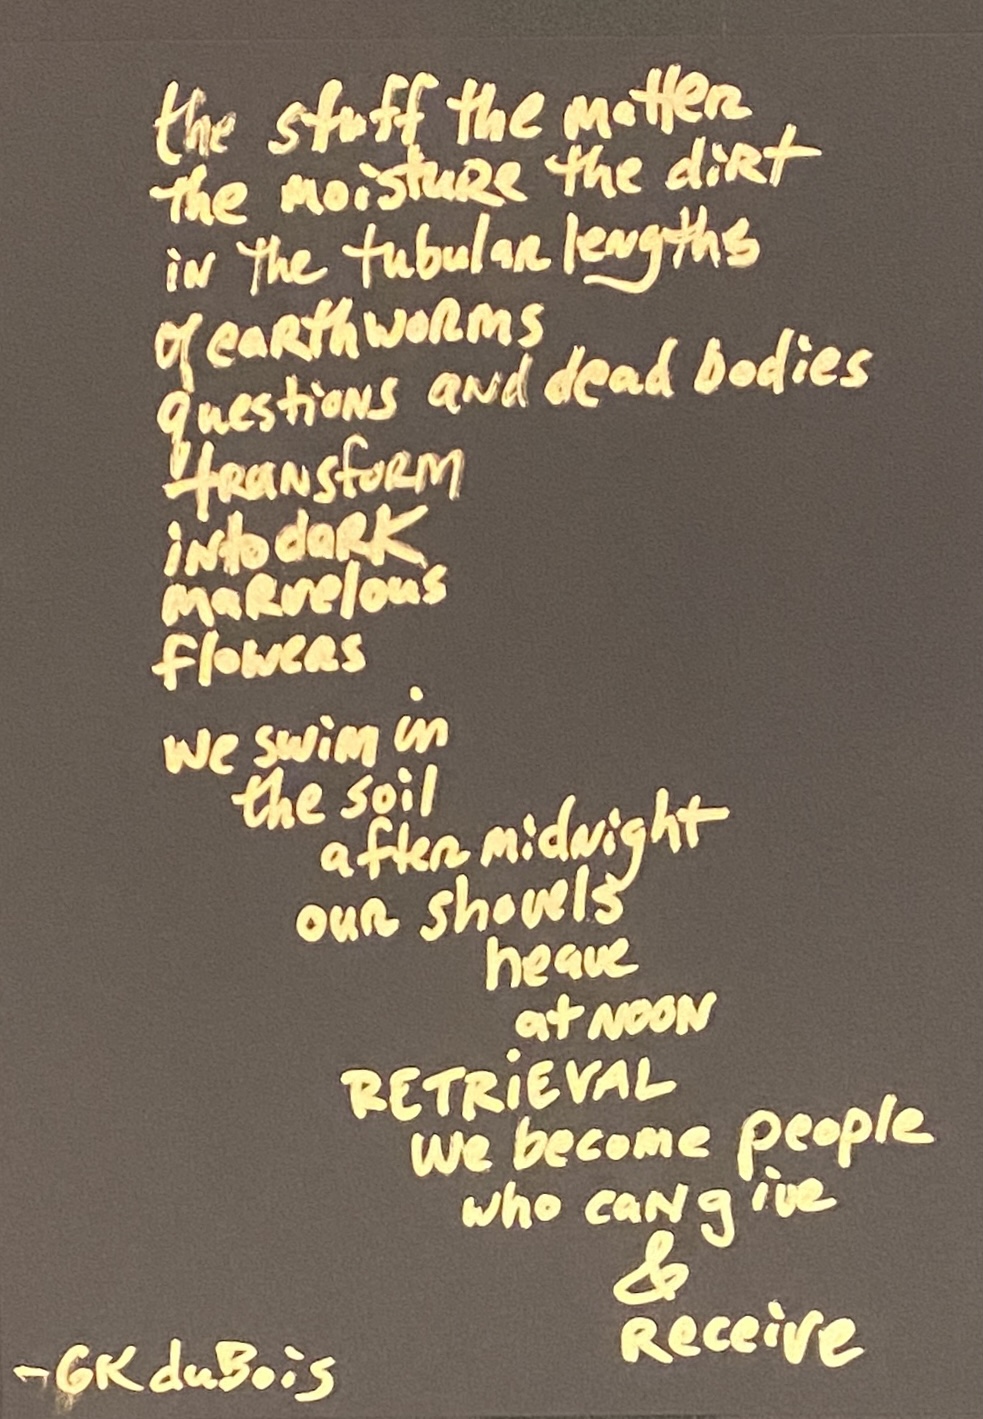 the stuff the matter
the moisture the dirt
in the tubular lengths
of earthworms
questions and dead bodies
transform
into dark
marvelous
flowers
we swim in
the soil
after midnight
our shovels
heave
at NOON
RETRiEVAL
we become people
who can give
&
Receive
-GK duBois